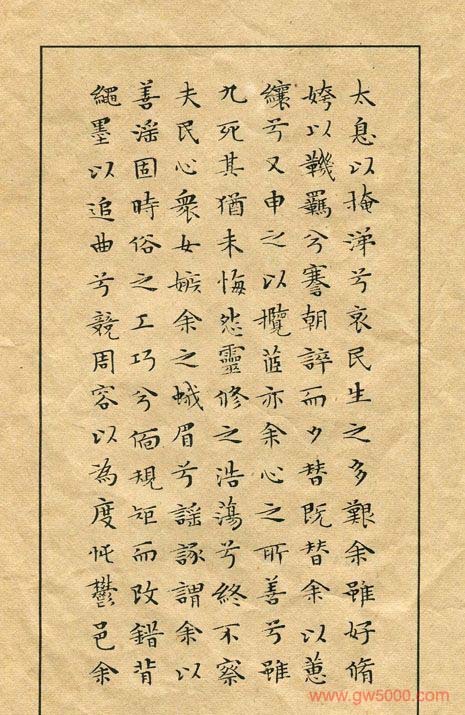 太息以掩涕兮哀民生之多艱余雖好脩
姱以鞿羈兮謇朝誶而夕替既替余以蕙
纕兮又申之以攬茝亦余心之所善兮雖
九死其猶未悔怨靈修之浩蕩兮終不察
夫民心衆女嫉余之蛾眉兮謠諑謂余以
善淫固時俗之工巧兮偭規矩而改錯背
繩墨以追曲兮競周容以為度忳鬱邑余
www.gw5000.com